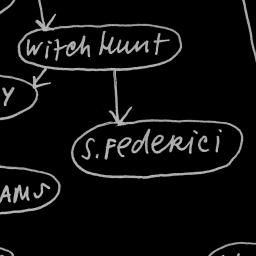 witch Hunt
Y
S. Federici
AMS